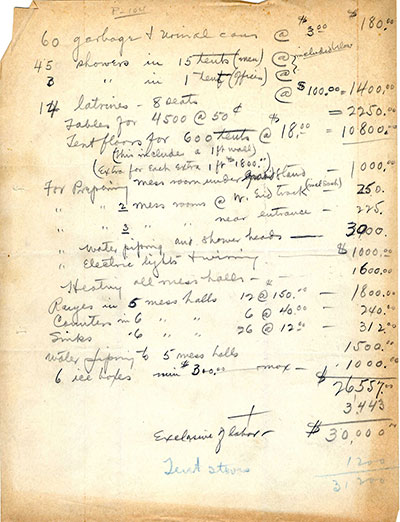 P-104
60 garbage & urinal cans @ $3.00 $180.00
45 showers in 15 tents (men) @ included below
3 " in 1 tent (Officers) @ ?
14 latrines - 8 seats @ $100.00 = 1400.00
Tables for 4500 @ 50¢ = 2250.00
Tent floors for 600 tents @ $18.00 = 10800.00
(this includes a 1 ft wall)
(Extra for Each Extra 1 ft $1800.00)
For Preparing mess room under Grand Stand - 1000.00
" " 2 mess rooms @ W. End track 250.
" " 3 " " near entrance - 225.
" Water piping and shower heads - 3000.00
" Electric lights & wiring - $1000.00
Heating all mess halls - 1600.00
Ranges in 5 mess halls 12 @ 150.00 - 1800.00
Counters in 6 " " 6 @ 40.00 - 240.00
Sinks " 6 " " 26 @ 12.00 - 312.00
Water piping to 5 mess halls 1500.00
6 ice boxes min $300.00 - max - 1000.00
$26,557.00
3,443
Exclusive of labor - $30,000.00
Tent stoves 1200
31,200